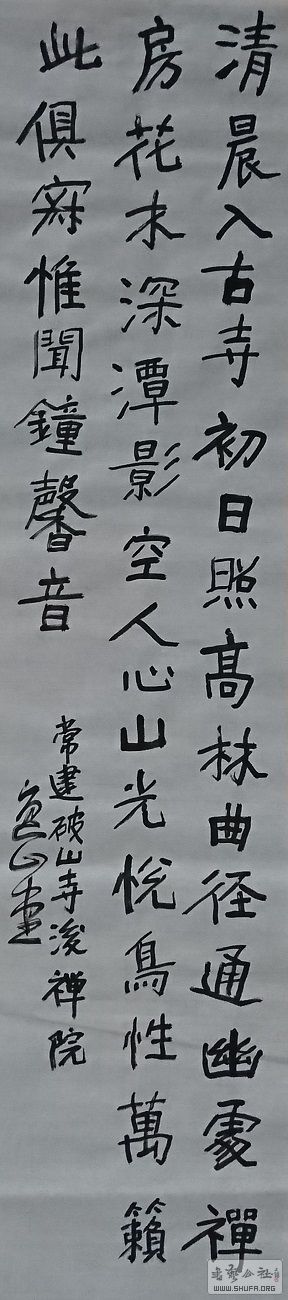 清晨入古寺初日照高林曲径通幽處禪
房花木深潭影空人心山光悅鳥性萬籟
此俱寂惟聞鐘馨音
常建破山寺後禪院
WWW.SHUFA.ORG